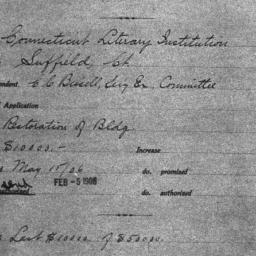 Connecticut Literary Institution
Suffield Ct.
ndent C C Bissell, Secy Ex. Committee
Application
Restoration of Bldg
$10000.- Increase
May 15/06 do. promised
FEB -5 1908 do. authorized
Last $10000 of $50000.